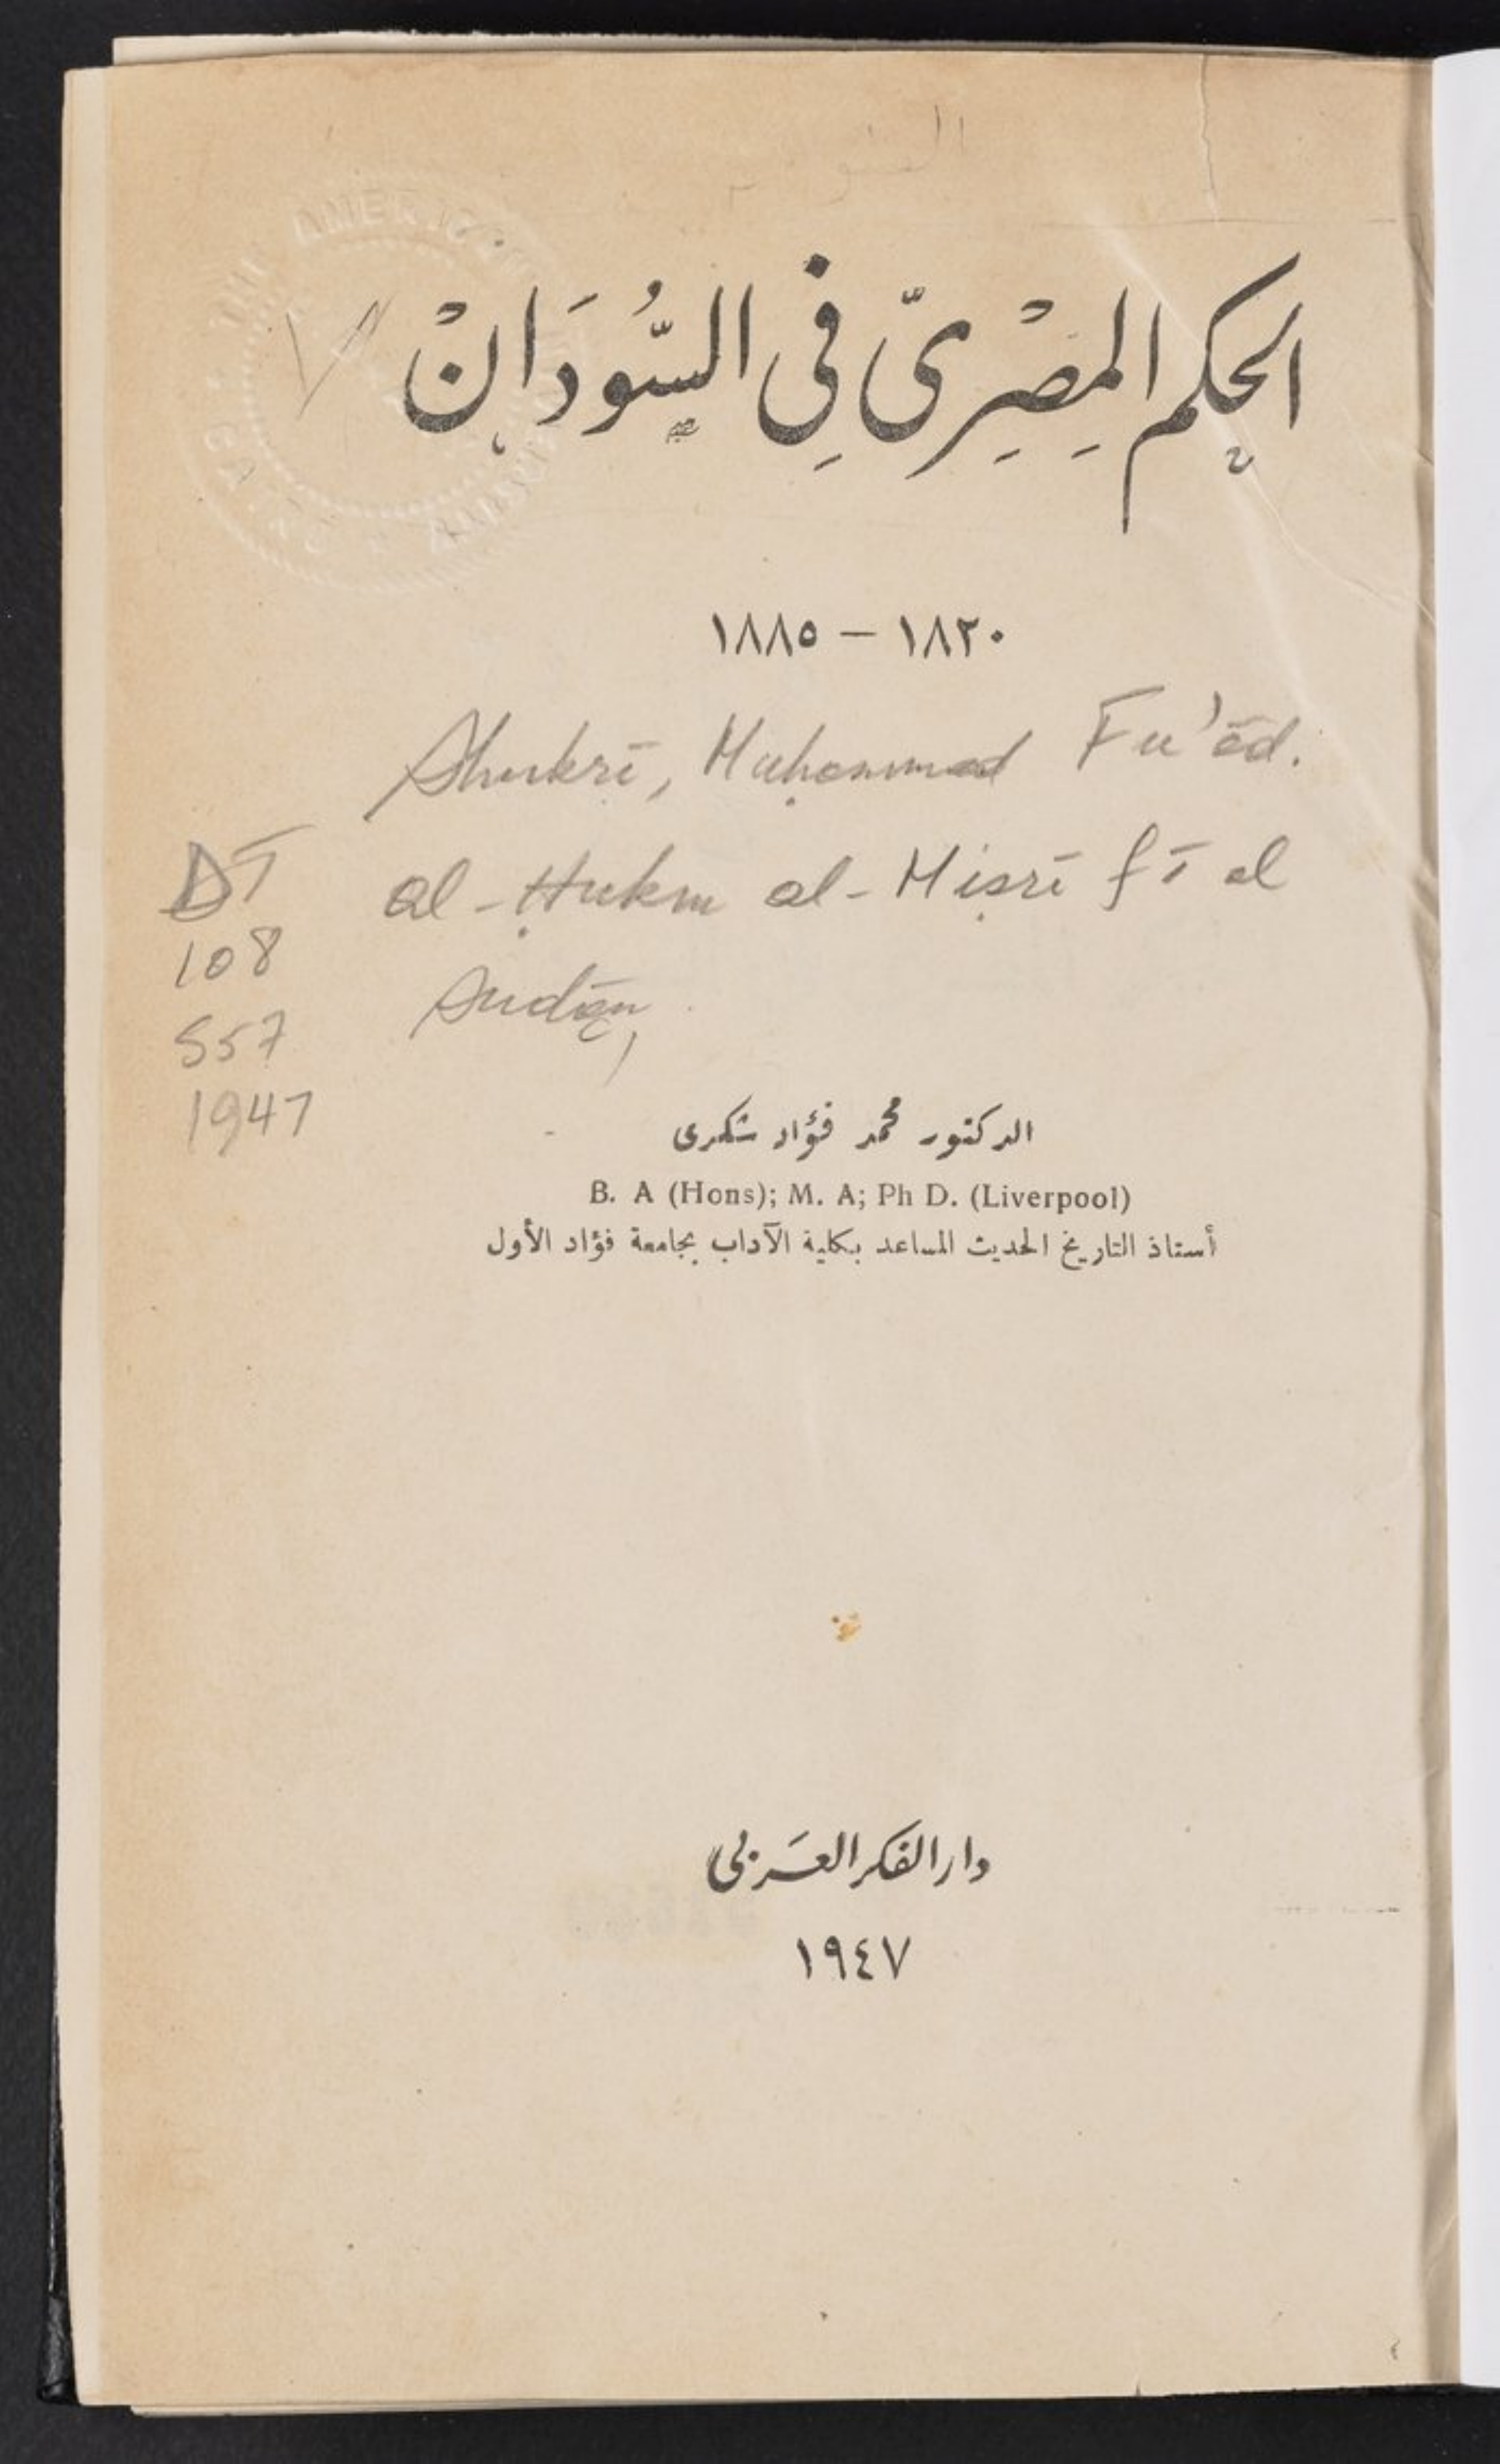 الحكم المِصْرِىّ فِى السُّودَانْ
١٨٢٠ – ١٨٨٥
Shukrī, Muḥammad Fu'ād.
al-Ḥukm al-Miṣrī fī al
Sudān,
DT
108
S57
1947
الدكتور محمد فؤاد شكرى
B. A (Hons); M. A; Ph D. (Liverpool)
أستاذ التاريخ الحديث المساعد بكلية الآداب بجامعة فؤاد الأول
دار الفكر العَربى
١٩٤٧